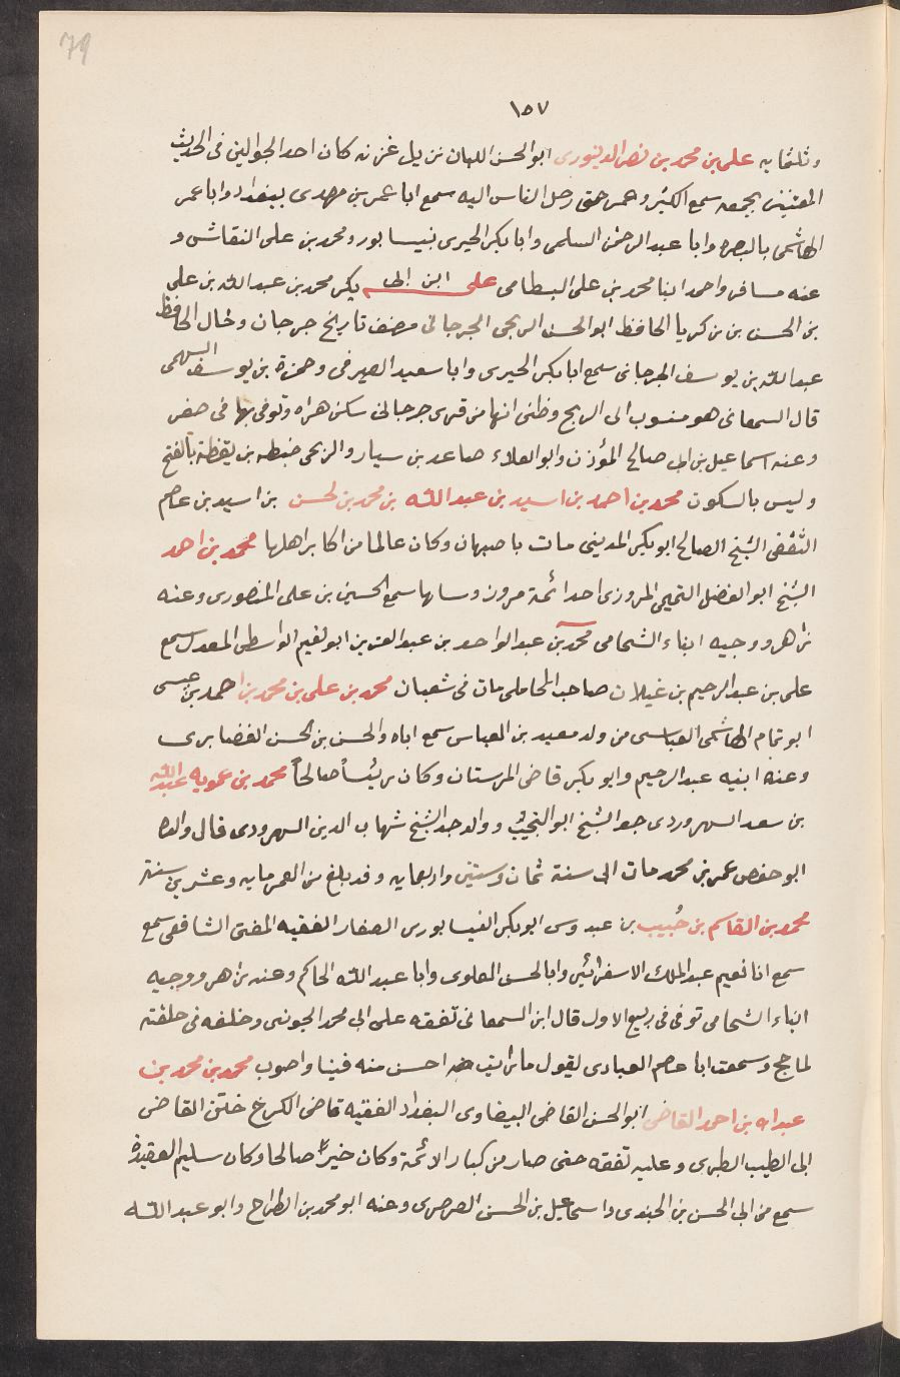 79
١٥٧
وثلثمايه على بن محمد بن نصر الدينورى ابو الحسن اللبان نزيل غزنه كان احد الجوالين فى الحديث
المعتنين بجمعه سمع الكثير وعمر حتى رحل الناس اليه سمع ابا عمر بن مهدى ببغداد وابا عمر
الهاشمى بالبصره وابا عبد الرحمن السلمى وابا بكر الحيرى بنيسابور ومحمد بن على النقاش و
عنه مسافر واحمد ابنا محمد بن على البسطامى على ابن ابى بكر محمد بن عبد الله بن على
بن الحسن بن زكريا الحافظ ابو الحسن الزبحى الجرجانى مصنف تاريخ جرجان وخال الحافظ
عبد الله بن يوسف الجرجانى سمع ابا بكر الحيرى وابا سعيد الصيرفى وحمزة بن يوسف السهمى
قال السمعانى هو منسوب الى الزبح وظنى انها من قرى جرجان سكن هراه وتوفى بها فى صفر
وعنه اسماعيل بن ابى صالح المؤذن وابو العلاء صاعد بن سيار والزبحى ضبطه بن يقظة بالفتح
وليس بالسكون محمد بن احمد بن اسيد بن عبد الله بن محمد بن لحسن بن اسيد بن عاصم
الثقفى الشيخ الصالح ابو بكر المدينى مات باصبهان وكان عالما من اكابر اهلها محمد بن احمد
الشيخ ابو الفضل التميمى المروزى احد ائمة مرو ورؤساها سمع الحسين بن على المنصورى وعنه
زاهر ووجيه ابناء الشحامى محمد بن عبد الواحد بن عبد العزيز بن ابو نعيم الواسطى المعدل سمع
على بن عبد الرحيم بن غيلان صاحب المحاملى مات فى شعبان محمد بن على بن محمد بن احمد بن عيسى
ابو تمام الهاشمى العباسى من ولد معبد بن العباس سمع اباه والحسن بن الحسن الغضايرى
وعنه ابنيه عبد الرحيم وابو بكر قاضى المرستان وكان رئيسا صالحا محمد بن عمويه عبد الله
بن سعد السهروردى جد الشيخ ابو النجيب ووالد جد الشيخ شهاب الدين السهرودى قال والده
ابو حفص عمر بن محمد مات ابى سنة ثمان وستين واربعمايه وقد بلغ من العمر مايه وعشرين سنة
محمد بن القاسم بن حُبيب بن عبدوس ابو بكر النيسابورى الصفار الفقيه المفتى الشافعى سمع
سمع ابا نعيم عبد الملك الاسفرائينى وابا لحسن العلوى وابا عبد الله الحاكم وعنه زاهر ووجيه
ابناء الشحامى توفى فى ربيع الاول قال ابن السمعانى تفقه على ابى محمد الجوينى وخلفه فى حلقته
لما حج وسمعت ابا عاصم العبادى يقول ما رأيت احسن منه فيتا واصوب محمد بن محمد بن
عبد الله بن احمد القاضى ابو الحسن القاضى البيضاوى البغداد الفقيه قاضى الكرخ ختن القاضى
ابى الطيب الطبرى وعليه تفقه حتى صار من كبار الائمة وكان خيرا صالحا وكان سليم العقيدة
سمع من ابى الحسن بن الجندى واسماعيل بن الحسن الصرصرى وعنه ابو محمد بن الطراح وابو عبد الله